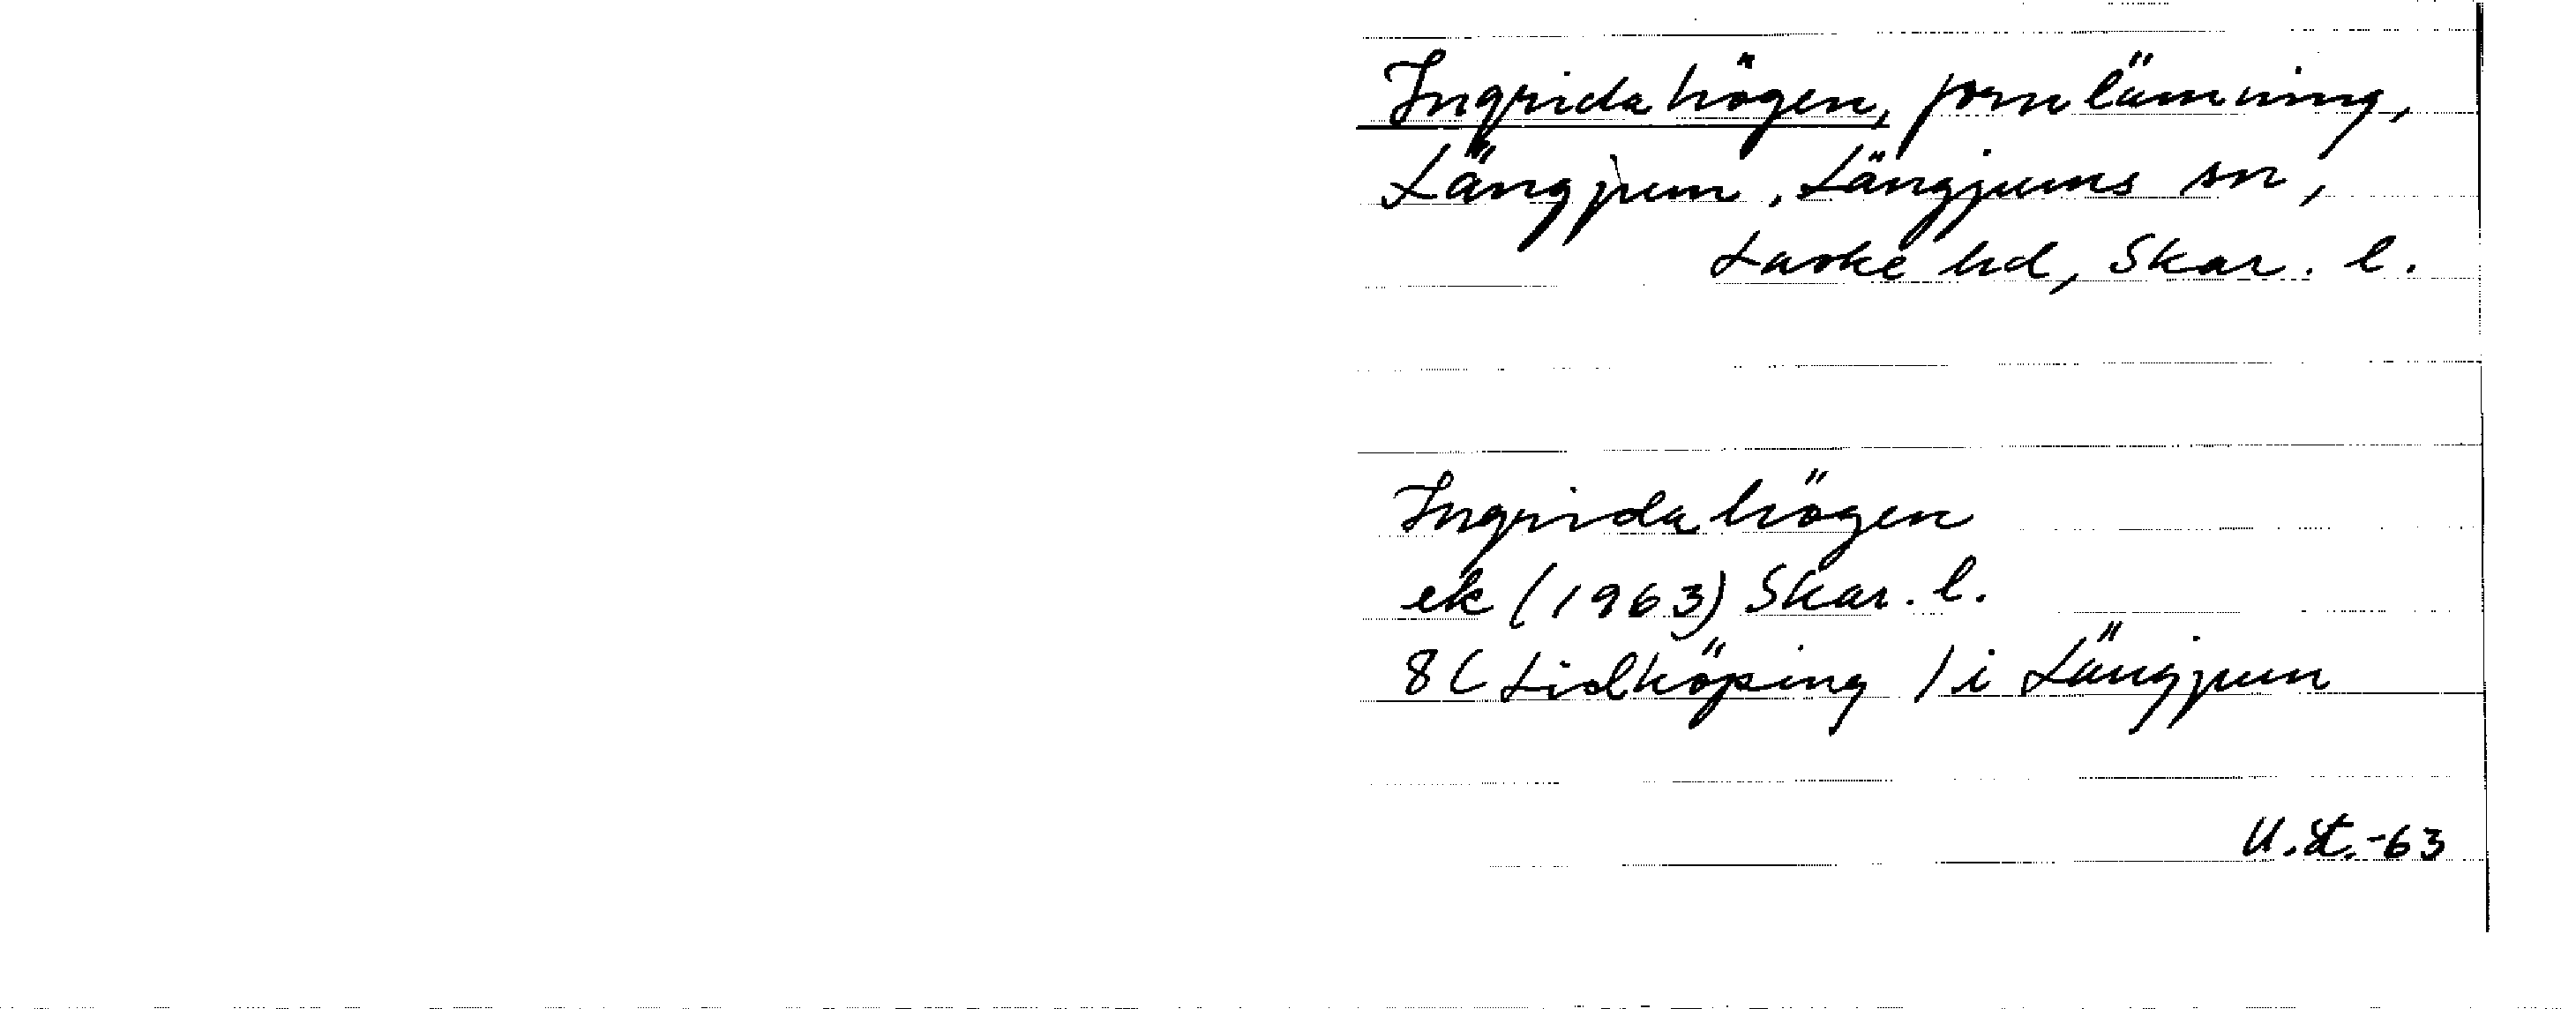 Ingridahögen, fornlämning,
Längjum, Längjums sn,
Laske hd, Skar. l.
Ingridahögen
ek (1963) Skar. l.
8C Lidköping /i Längjum
U.L.-63